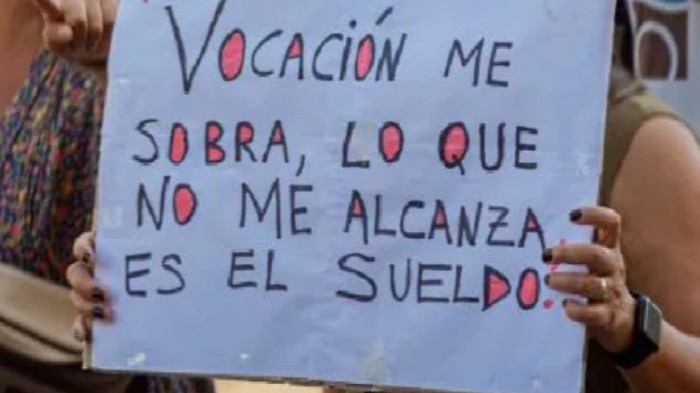 VOCACIÓN ME
SOBRA, LO QUE
NO ME ALCANZA
ES EL SUELDO!